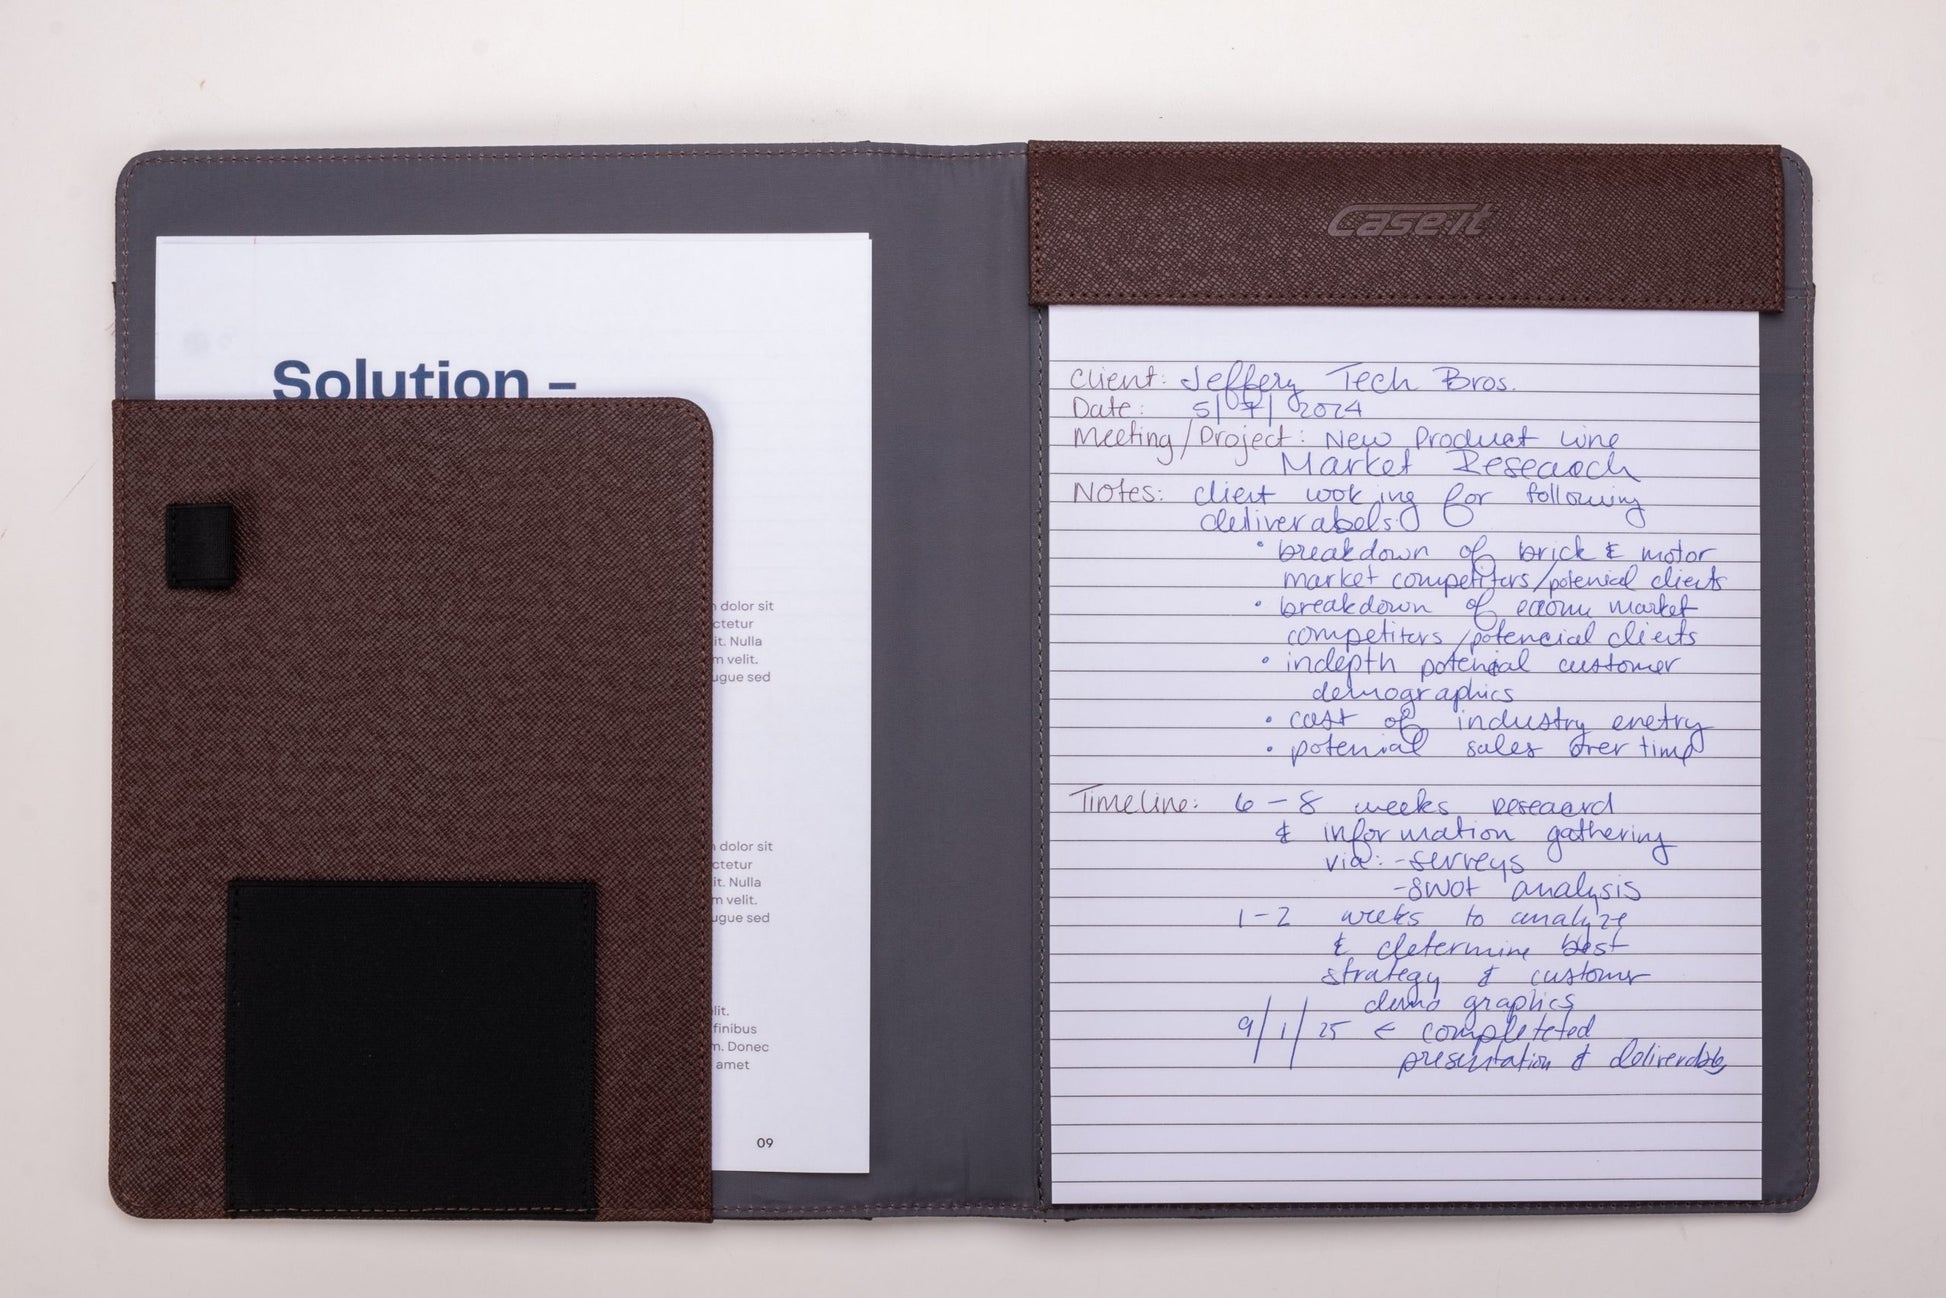 Solution –
dolor sit
ctetur
it. Nulla
m velit.
ugue sed
dolor sit
ctetur
it. Nulla
m velit.
ugue sed
lit.
finibus
m. Donec
amet
09
Case·it
Client: Jeffery Tech Bros.
Date: 5/7/2024
Meeting/Project: New Product Line
Market Research
Notes: client looking for following
deliverabels:
• breakdown of brick & motor
market competitors/potenial clients
• breakdown of ecomm market
competitors/potencial clients
• indepth potencial customer
demographics
• cost of industry enetry
• potenial sales over time
Timeline: 6 – 8 weeks research
& information gathering
via: - surveys
- SWOT analysis
1 – 2 weeks to analyze
& determine best
strategy & customer
demographics
9/1/25 ← completeted
presentation & deliverables